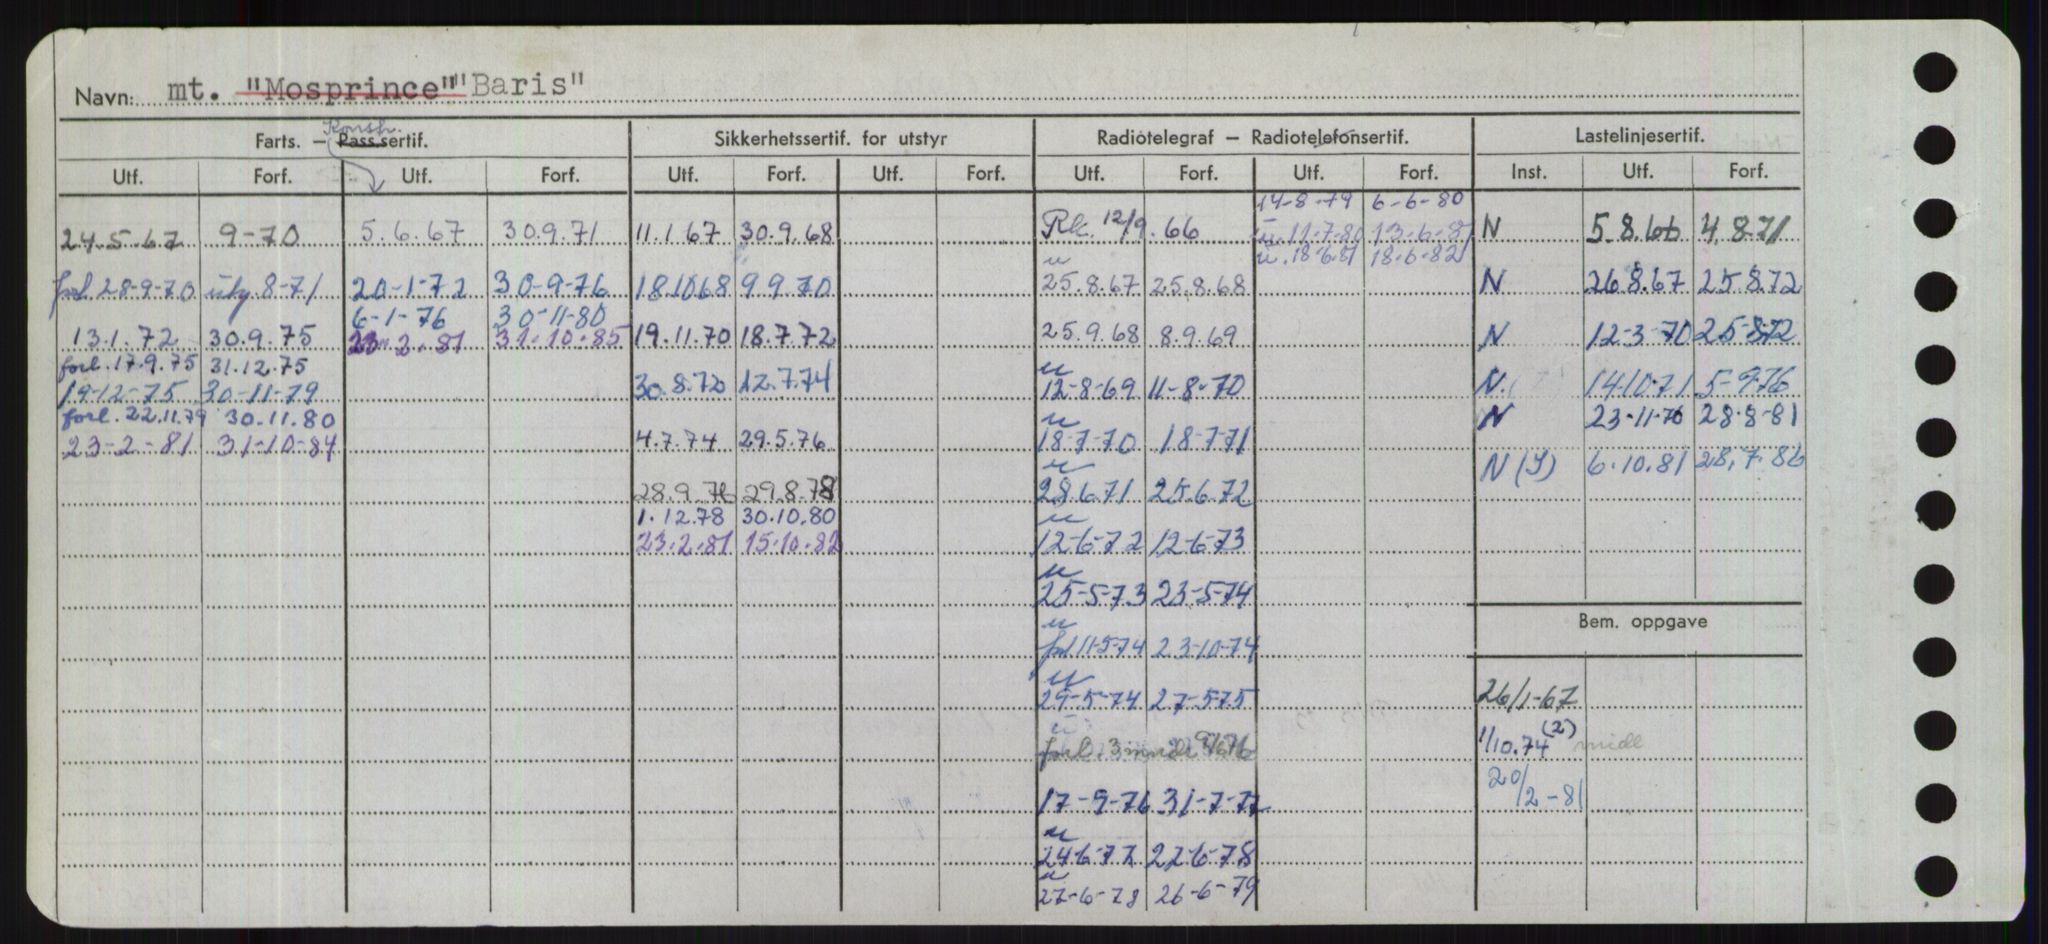 Navn: mt. "Mosprince" "Baris"
Konstr.
Farts. — Pass.sertif. Sikkerhetssertif. for utstyr Radiotelegraf — Radiotelefonsertif. Lastelinjesertif.
Utf. Forf. Utf. Forf. Utf. Forf. Utf. Forf. Utf. Forf. Utf. Forf. Inst. Utf. Forf.
14-8-79 6-6-80
24.5.67 9-70 5.6.67 30.9.71 11.1.67 30.9.68 Rk. 12/9.66 u. 11-7-80 13-6-81 N 5.8.66 4.8.71
u u. 18-6-81 18-6-82
forl 28-9-70 utg 8-71 20-1-72 30-9-76 18.10.68 9.9.70 25.8.67 25.8.68 N 26.8.67 25.8.72
6-1-76 30-11-80
13.1.72 30.9.75 23-2-81 31-10-85 19.11.70 18.7.72 25.9.68 8.9.69 N 12-3-70 25-8-72
forl. 17.9.75 31.12.75 u
19-12-75 30-11-79 30.8.72 12.7.74 12-8-69 11-8-70 N. 14.10.71 5-9-76
forl. 22.11.79 30.11.80 u N 23-11-76 28-8-81
23-2-81 31-10-84 4.7.74 29.5.76 18-7-70 18-7-71
u N (I) 6.10.81 28.7.86
28.9.76 29.8.78 28.6.71 25.6.72
1.12.78 30.10.80 u
23.2.81 15.10.82 12-6-72 12-6-73
u
25-5-73 23-5-74
u Bem. oppgave
forl 11-5-74 23-10-74
u
29-5-74 27-5-75 26/1-67
u
forl. 3 mndr 9/6 76 1/10.74 (2) midl
17-9-76 31-7-77 20/2-81
u
24-6-77 22-6-78
u
27-6-78 26-6-79